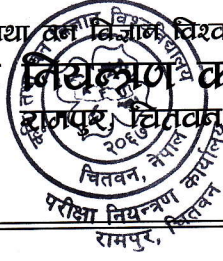 तथा वन विज्ञान विश्व
नियन्त्रण का
रामपुर, चितवन,
२०६७
चितवन, नेपाल
परीक्षा नियन्त्रण कार्यालय
रामपुर, चितवन